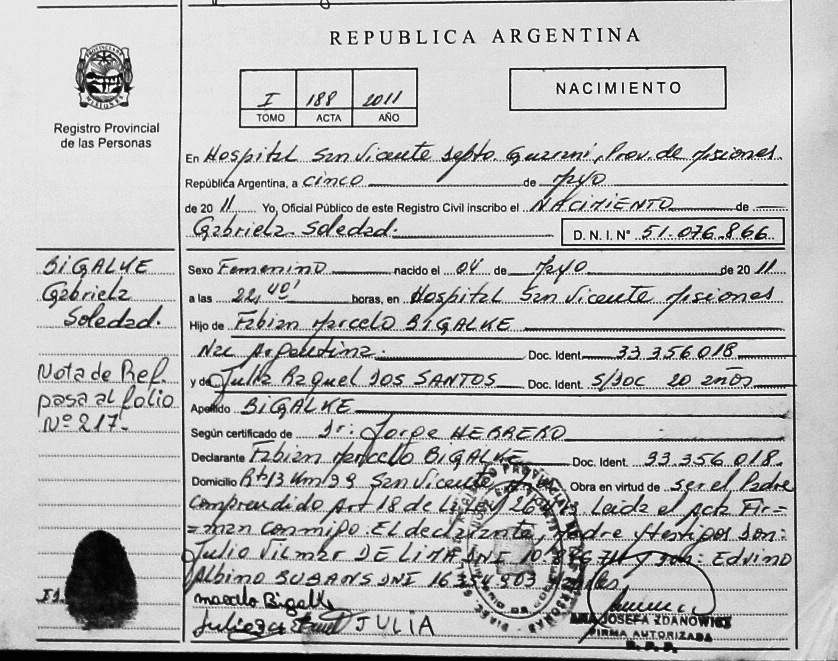 REPUBLICA ARGENTINA
PROVINCIA DE MISIONES
Registro Provincial
de las Personas
I 188 2011
TOMO ACTA AÑO
NACIMIENTO
En Hospital San Vicente Depto Guaraní, Prov. de Misiones
República Argentina, a cinco de Mayo
de 2011 Yo, Oficial Público de este Registro Civil inscribo el NACIMIENTO de
Gabriela Soledad. D.N.I. N° 51.076.866
BIGALKE
Gabriela
Soledad.
Nota de Ref.
pasa al folio
Nº 217.-
Sexo Femenino nacido el 04 de Mayo de 2011
a las 22,40' horas, en Hospital San Vicente Misiones
Hijo de Fabian Marcelo BIGALKE
Nac Argentina. Doc. Ident. 33.356.018
y de Julia Raquel DOS SANTOS Doc. Ident. S/Doc 20 años
Apellido BIGALKE
Según certificado de Dr: Jorge HERRERO
Declarante Fabian Marcelo BIGALKE Doc. Ident. 33.356.018.
Domicilio San Vicente, Obra en virtud de ser el Padre
comprendido Art 18 de Ley 26413 Leida el acta Fir=
=man conmigo El declarante, Madre y testigos son:
Julio Vilmar DE LIMA DNI Edvino
Albino DNI
Marcelo Bigalke
JULIA
ANA JOSEFA ZDANOWICZ
FIRMA AUTORIZADA
R. P. P.